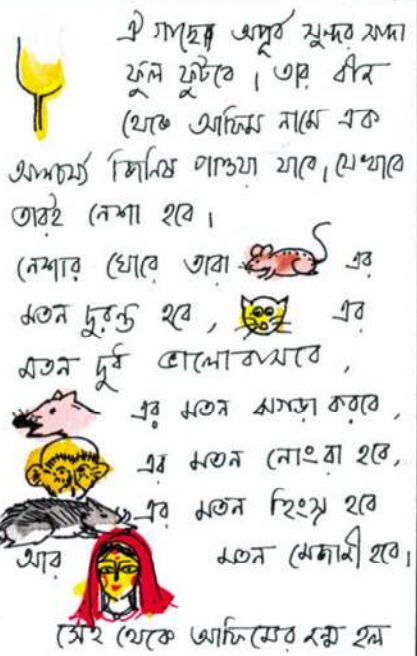 ঐ গাছের অপূর্ব সুন্দর সাদা
ফুল ফুটবে। তার বীজ
থেকে আফিম নামে এক
আশ্চর্য্য জিনিষ পাওয়া যাবে, যে খাবে
তারই নেশা হবে।
নেশার ঘোরে তারা এর
মতন দুরন্ত হবে, এর
মতন দুধ ভালোবাসবে,
এর মতন ঝগড়া করবে,
এর মতন নোংরা হবে,
এর মতন হিংস্র হবে
আর মতন মেজাজী হবে।
সেই থেকে আফিমের জন্ম হল